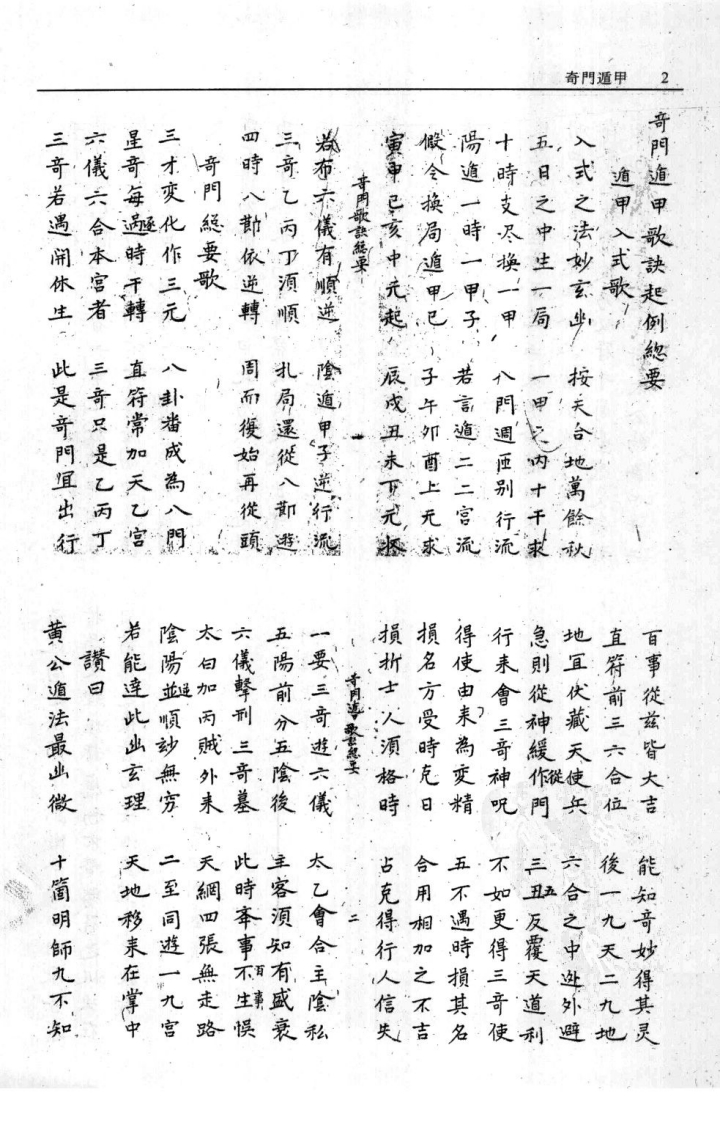 奇門遁甲 2
奇門遁甲歌訣起例總要
遁甲入式歌
入式之法妙玄幽 按天合地萬餘秋
五日之中生一局 一甲之內十干求
十時支尽換一甲 八門週匝别行流
陽遁一時一甲子 若言遁二二宮流
假令換局遁甲已 子午卯酉上元求
寅申巳亥中元起 辰戌丑未下元
奇門歌訣總要
若布六儀有順逆 陰遁甲子逆行流
三奇乙丙丁須順 扎局還從八節遊
四時八節依逆轉 周而復始再從頭
奇門総要歌
三才变化作三元 八卦番成為八門
星奇每遇逐時干轉 直符常加天乙宮
六儀六合本宮者 三奇只是乙丙丁
三奇若遇開休生 此是奇門宜出行
百事從茲皆大吉 能知奇妙得其灵
直符前三六合位 後一九天二九地
地宜伏藏天使兵 六合之中迯外避
急則從神緩作從門 三丑五反覆天道利
行来會三奇神呪 不如更得三奇使
得使由来為变精 五不遇時損其名
損名方受時克日 合用相加之不吉
損折士人須格時 占克得行人信失
奇門遁歌訣総要 二
一要三奇遊六儀 太乙會合主陰私
五陽前分五陰後 主客須知有盛衰
六儀擊刑三奇墓 此時奉事不百事生悞
太白加丙賊外来 天網四張無走路
陰陽並逆順玅無穷 二至同遊一九宮
若能達此幽玄理 天地移来在掌中
讃曰
黄公遁法最幽微 十箇明師九不知